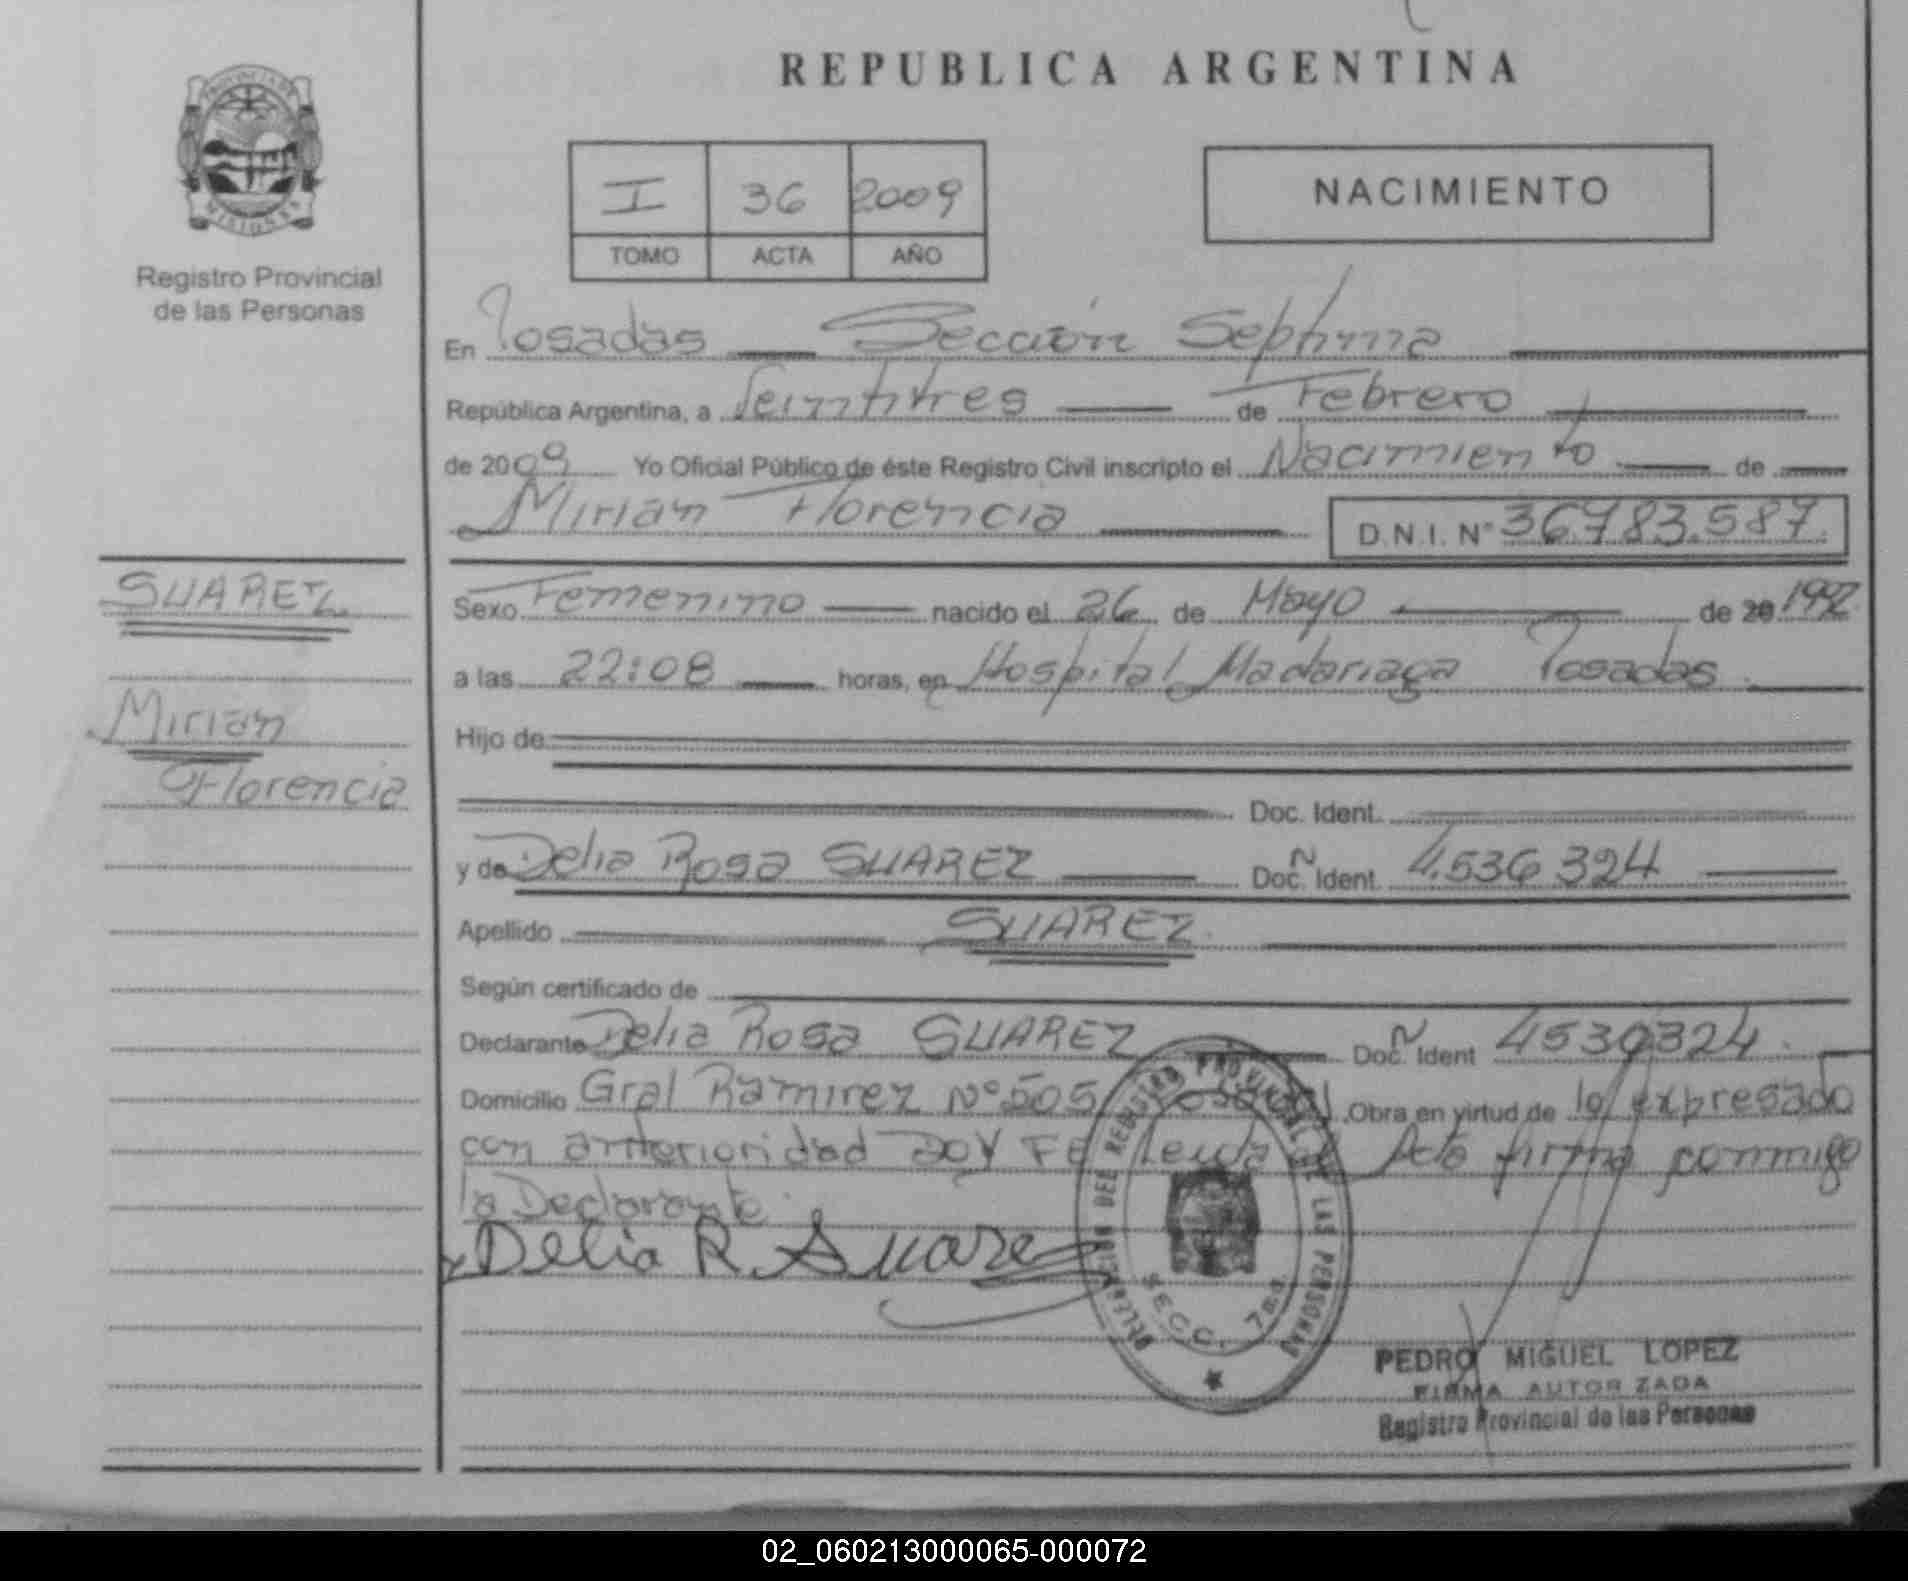 REPUBLICA ARGENTINA
PROVINCIA DE
MISIONES
Registro Provincial
de las Personas
I 36 2009
TOMO ACTA AÑO
NACIMIENTO
En Posadas Sección Septima
República Argentina, a Veintitres de Febrero
de 2009 Yo Oficial Público de éste Registro Civil inscripto el Nacimiento de
Mirian Florencia D.N.I. N° 36.783.587.
SUAREZ
Mirian
Florencia
Sexo Femenino nacido el 26 de Mayo de 20 1992
a las 22:08 horas, en Hospital Madariaga Posadas
Hijo de
Doc. Ident.
y de Delia Rosa SUAREZ Doc. Ident. 4.536 324
Apellido SUAREZ
Según certificado de
Declarante Delia Rosa SUAREZ Doc. Ident 4536324.
Domicilio Gral Ramirez N° 505 Posadas. Obra en virtud de lo expresado
con anterioridad DOY FE Leida el Acta firma conmigo
la Declarante.
Delia R. Suarez
DELEGACION DEL REGISTRO PROVINCIAL DE LAS PERSONAS
SECC. 7ma.
PEDRO MIGUEL LOPEZ
FIRMA AUTORIZADA
Registro Provincial de las Personas
02_060213000065-000072